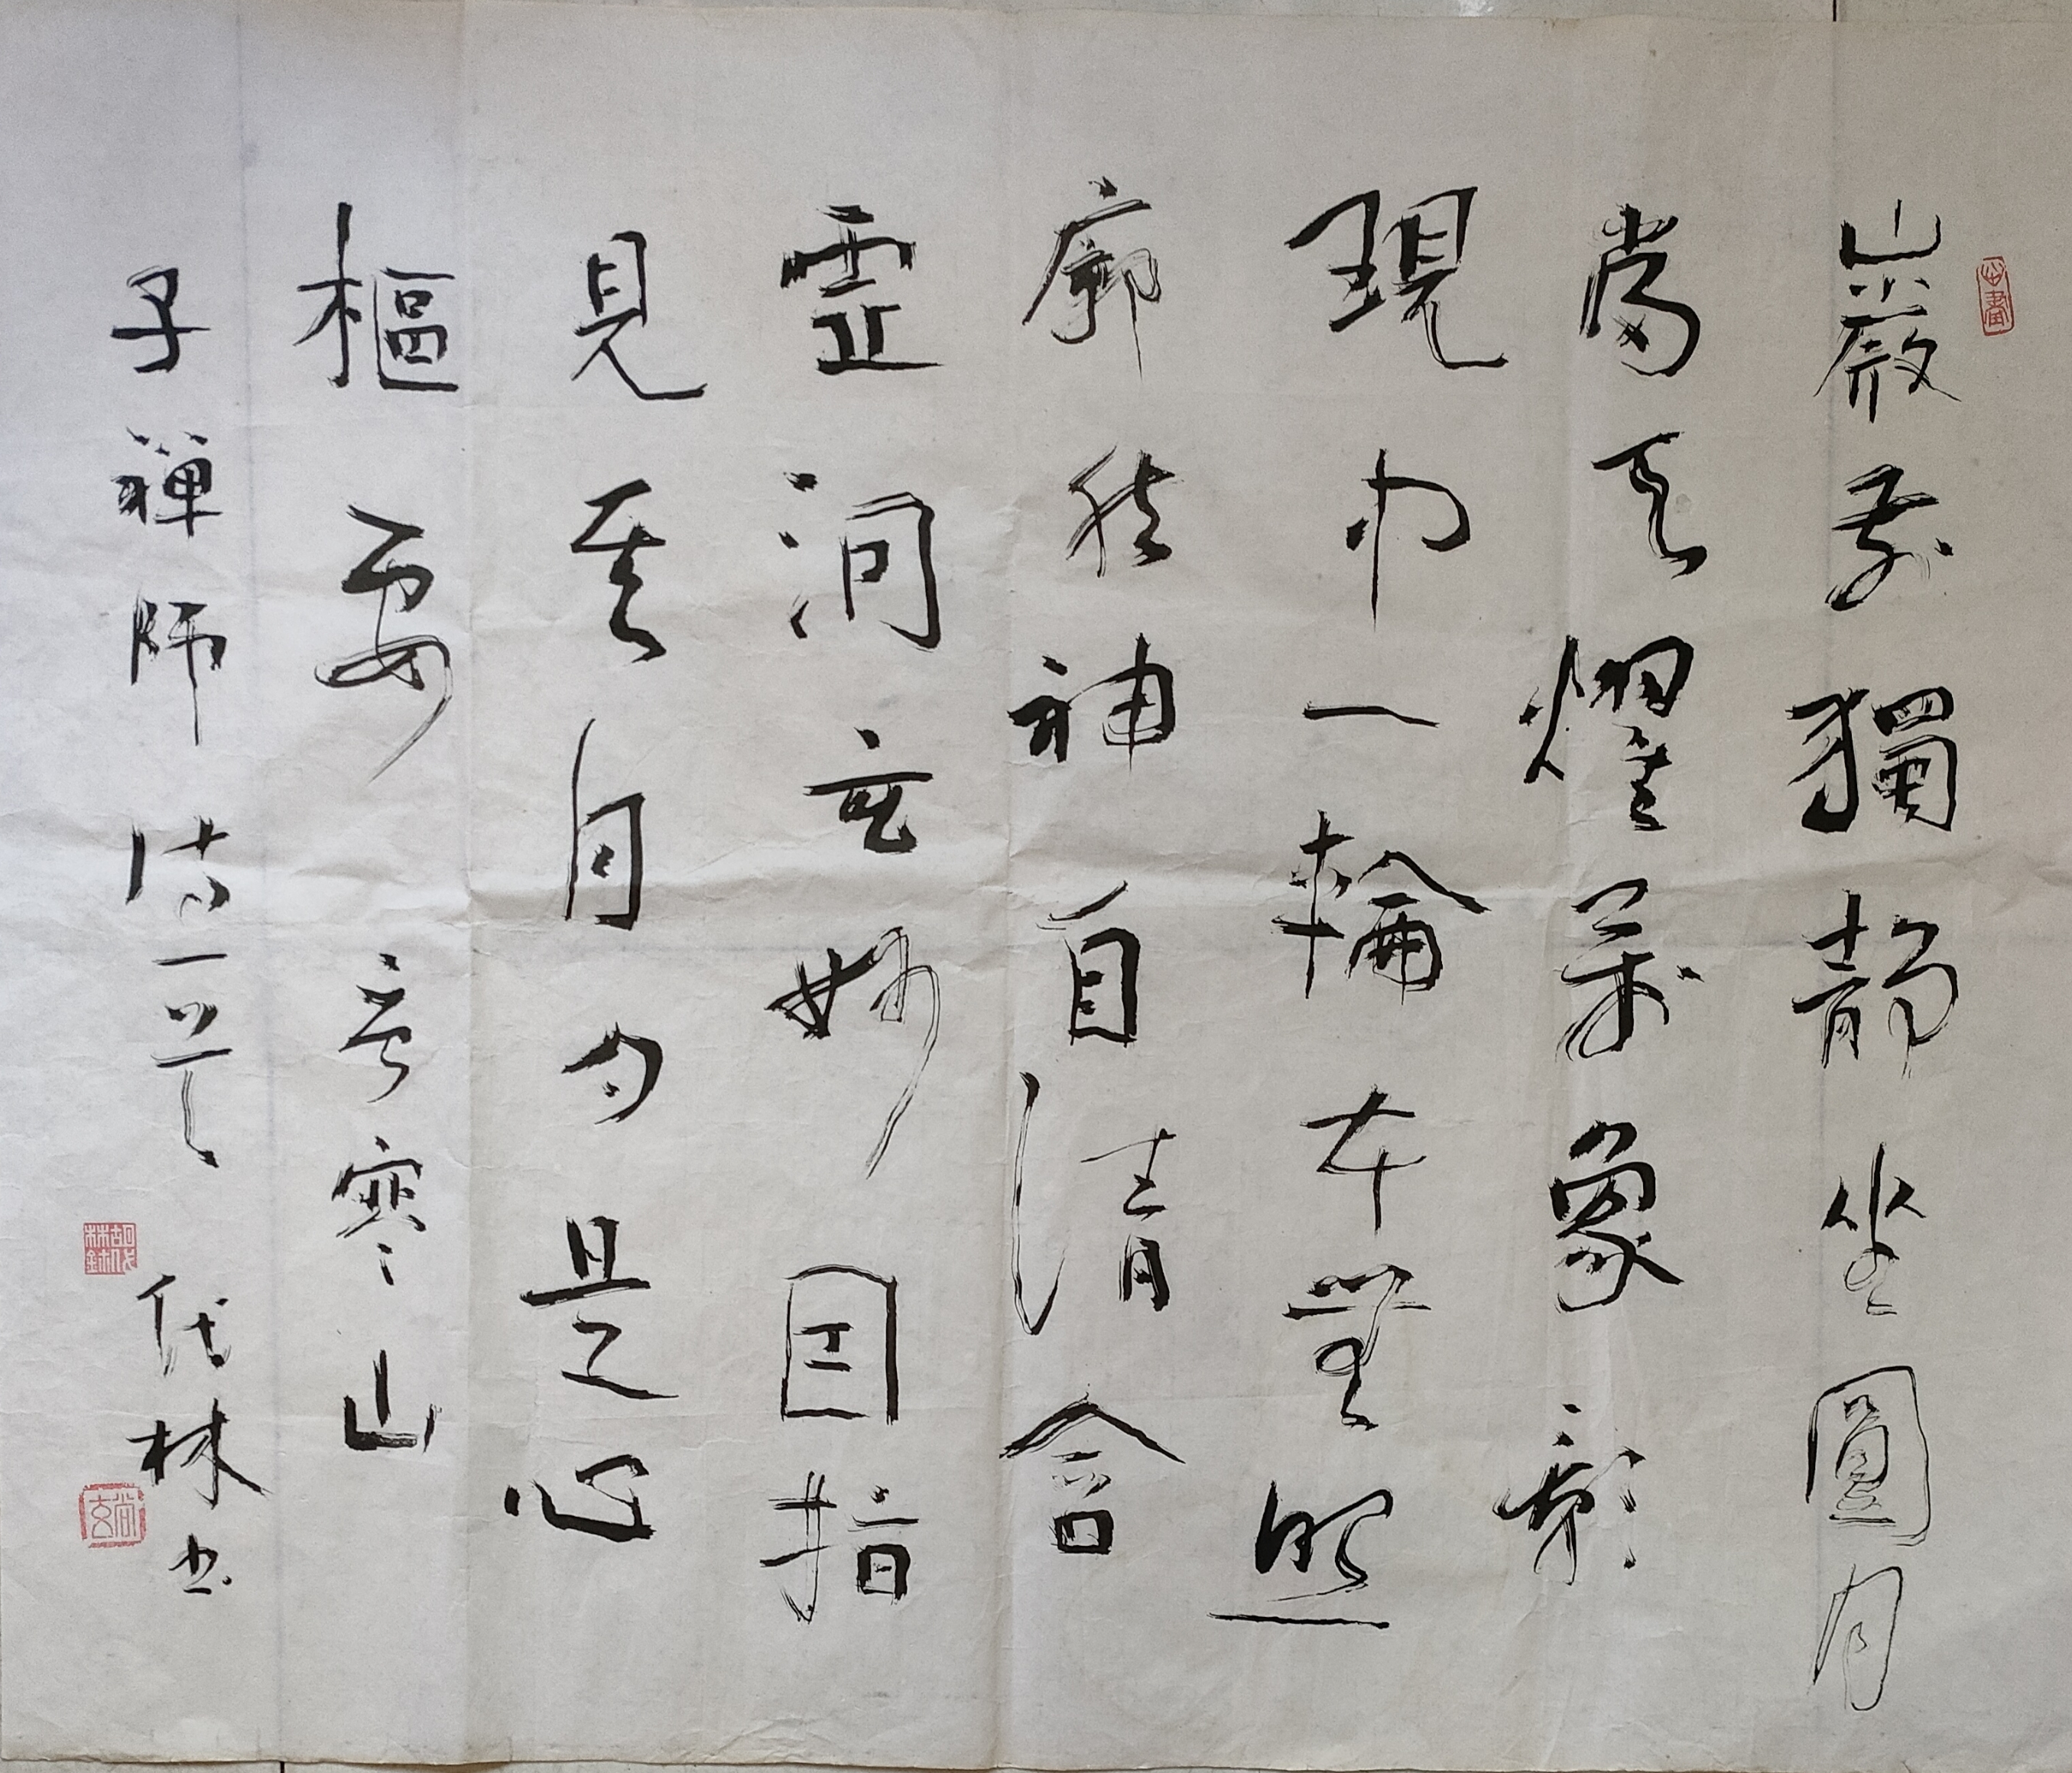 巖前獨靜坐圓月
當天耀萬象影
現中一輪本無照
廓然神自清含
虛洞玄妙因指
見其月月是心
樞要 录寒山
子禪師诗一首 代林书
尚玄